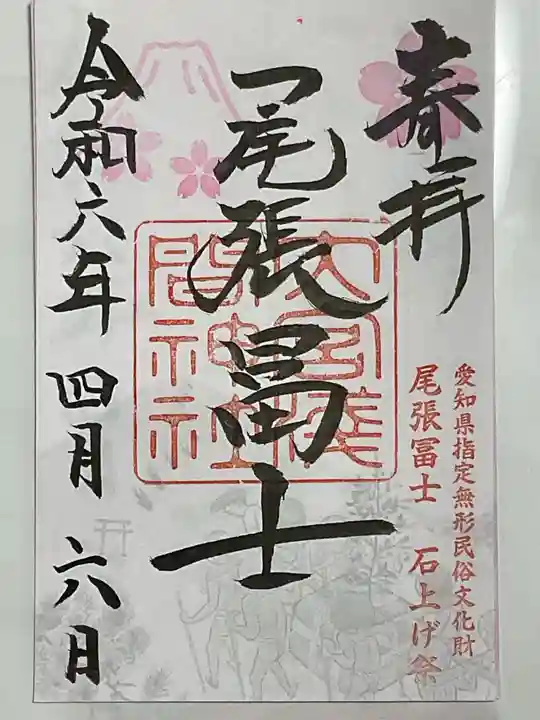 春拝
愛知県指定無形民俗文化財
尾張冨士 石上げ祭
尾張冨士
大宮浅間神社
令和六年 四月 六日